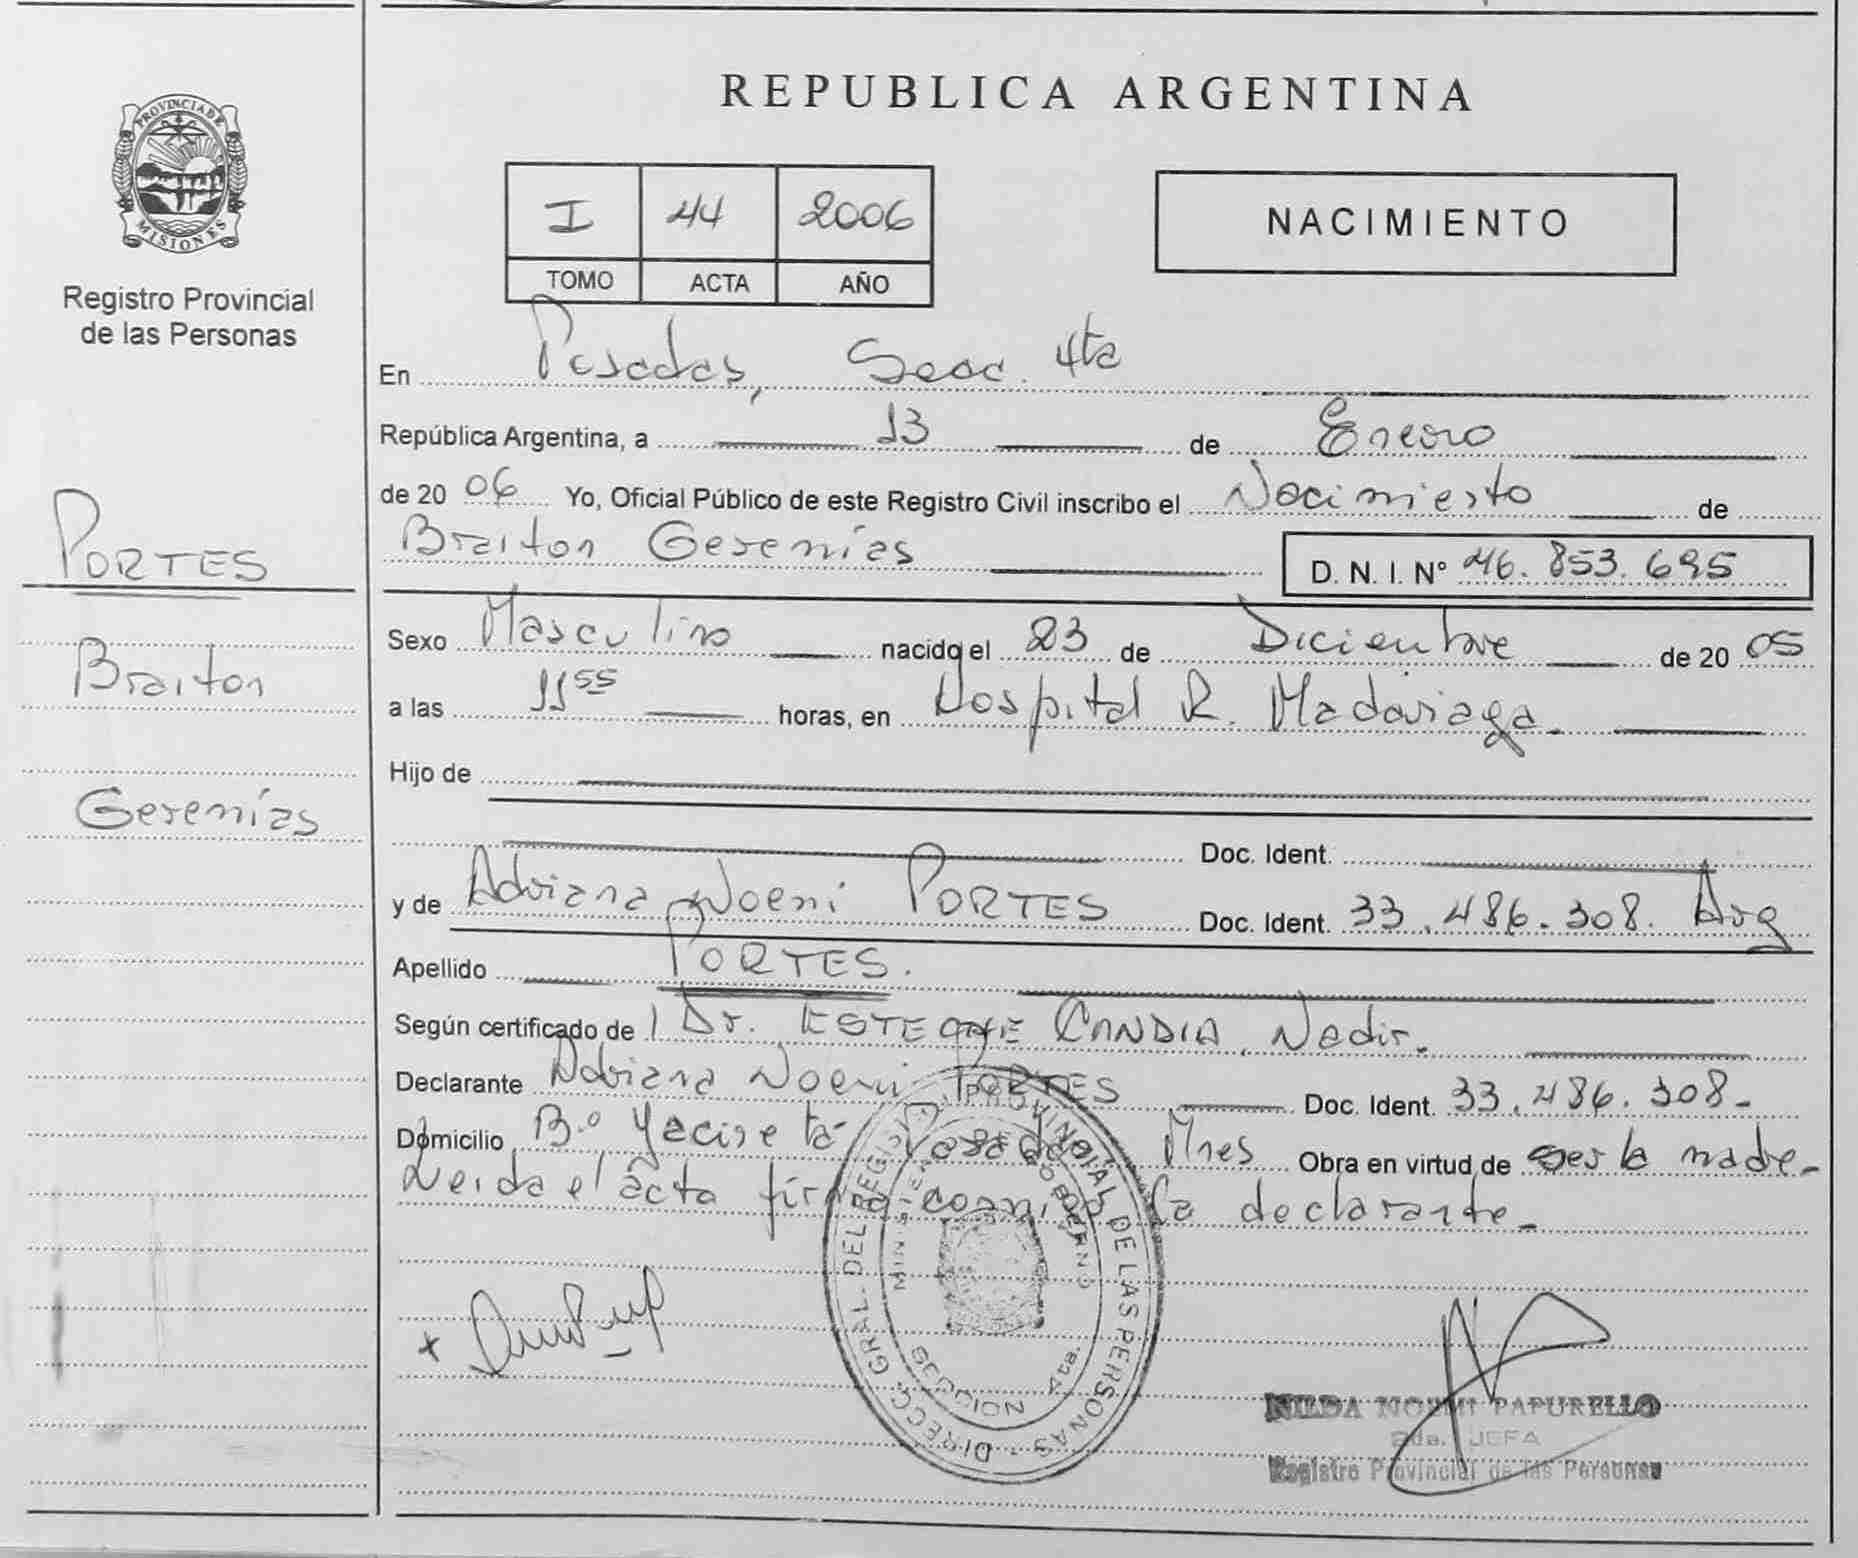 REPUBLICA ARGENTINA
PROVINCIA DE
MISIONES
Registro Provincial
de las Personas
I 44 2006
TOMO ACTA AÑO
NACIMIENTO
En Posadas, Secc. 4ta
República Argentina, a 13 de Enero
de 20 06 Yo, Oficial Público de este Registro Civil inscribo el Nacimiento de
Braiton Geremías D. N. I. Nº 46.853.695
PORTES
Braiton
Geremías
Sexo Masculino nacido el 23 de Diciembre de 20 05
a las 11 55 horas, en Hospital R. Madariaga.
Hijo de
Doc. Ident.
y de Adriana Noemi PORTES Doc. Ident. 33.486.308. Arg
Apellido PORTES.
Según certificado de Dr. CANDIA, Nadir.
Declarante Adriana Noemi PORTES Doc. Ident. 33.486.308-
Domicilio B.º Yacireta- Posadas Mnes Obra en virtud de ser la madre-
Leida el acta firma conmigo la declarante-
DIRECC. GRAL. DEL REGISTRO PROVINCIAL DE LAS PERSONAS
MINISTERIO DE GOBIERNO
SECCION 4ta.
NILDA NOEMI PAPURELLO
2da. JEFA
Registro Provincial de las Personas